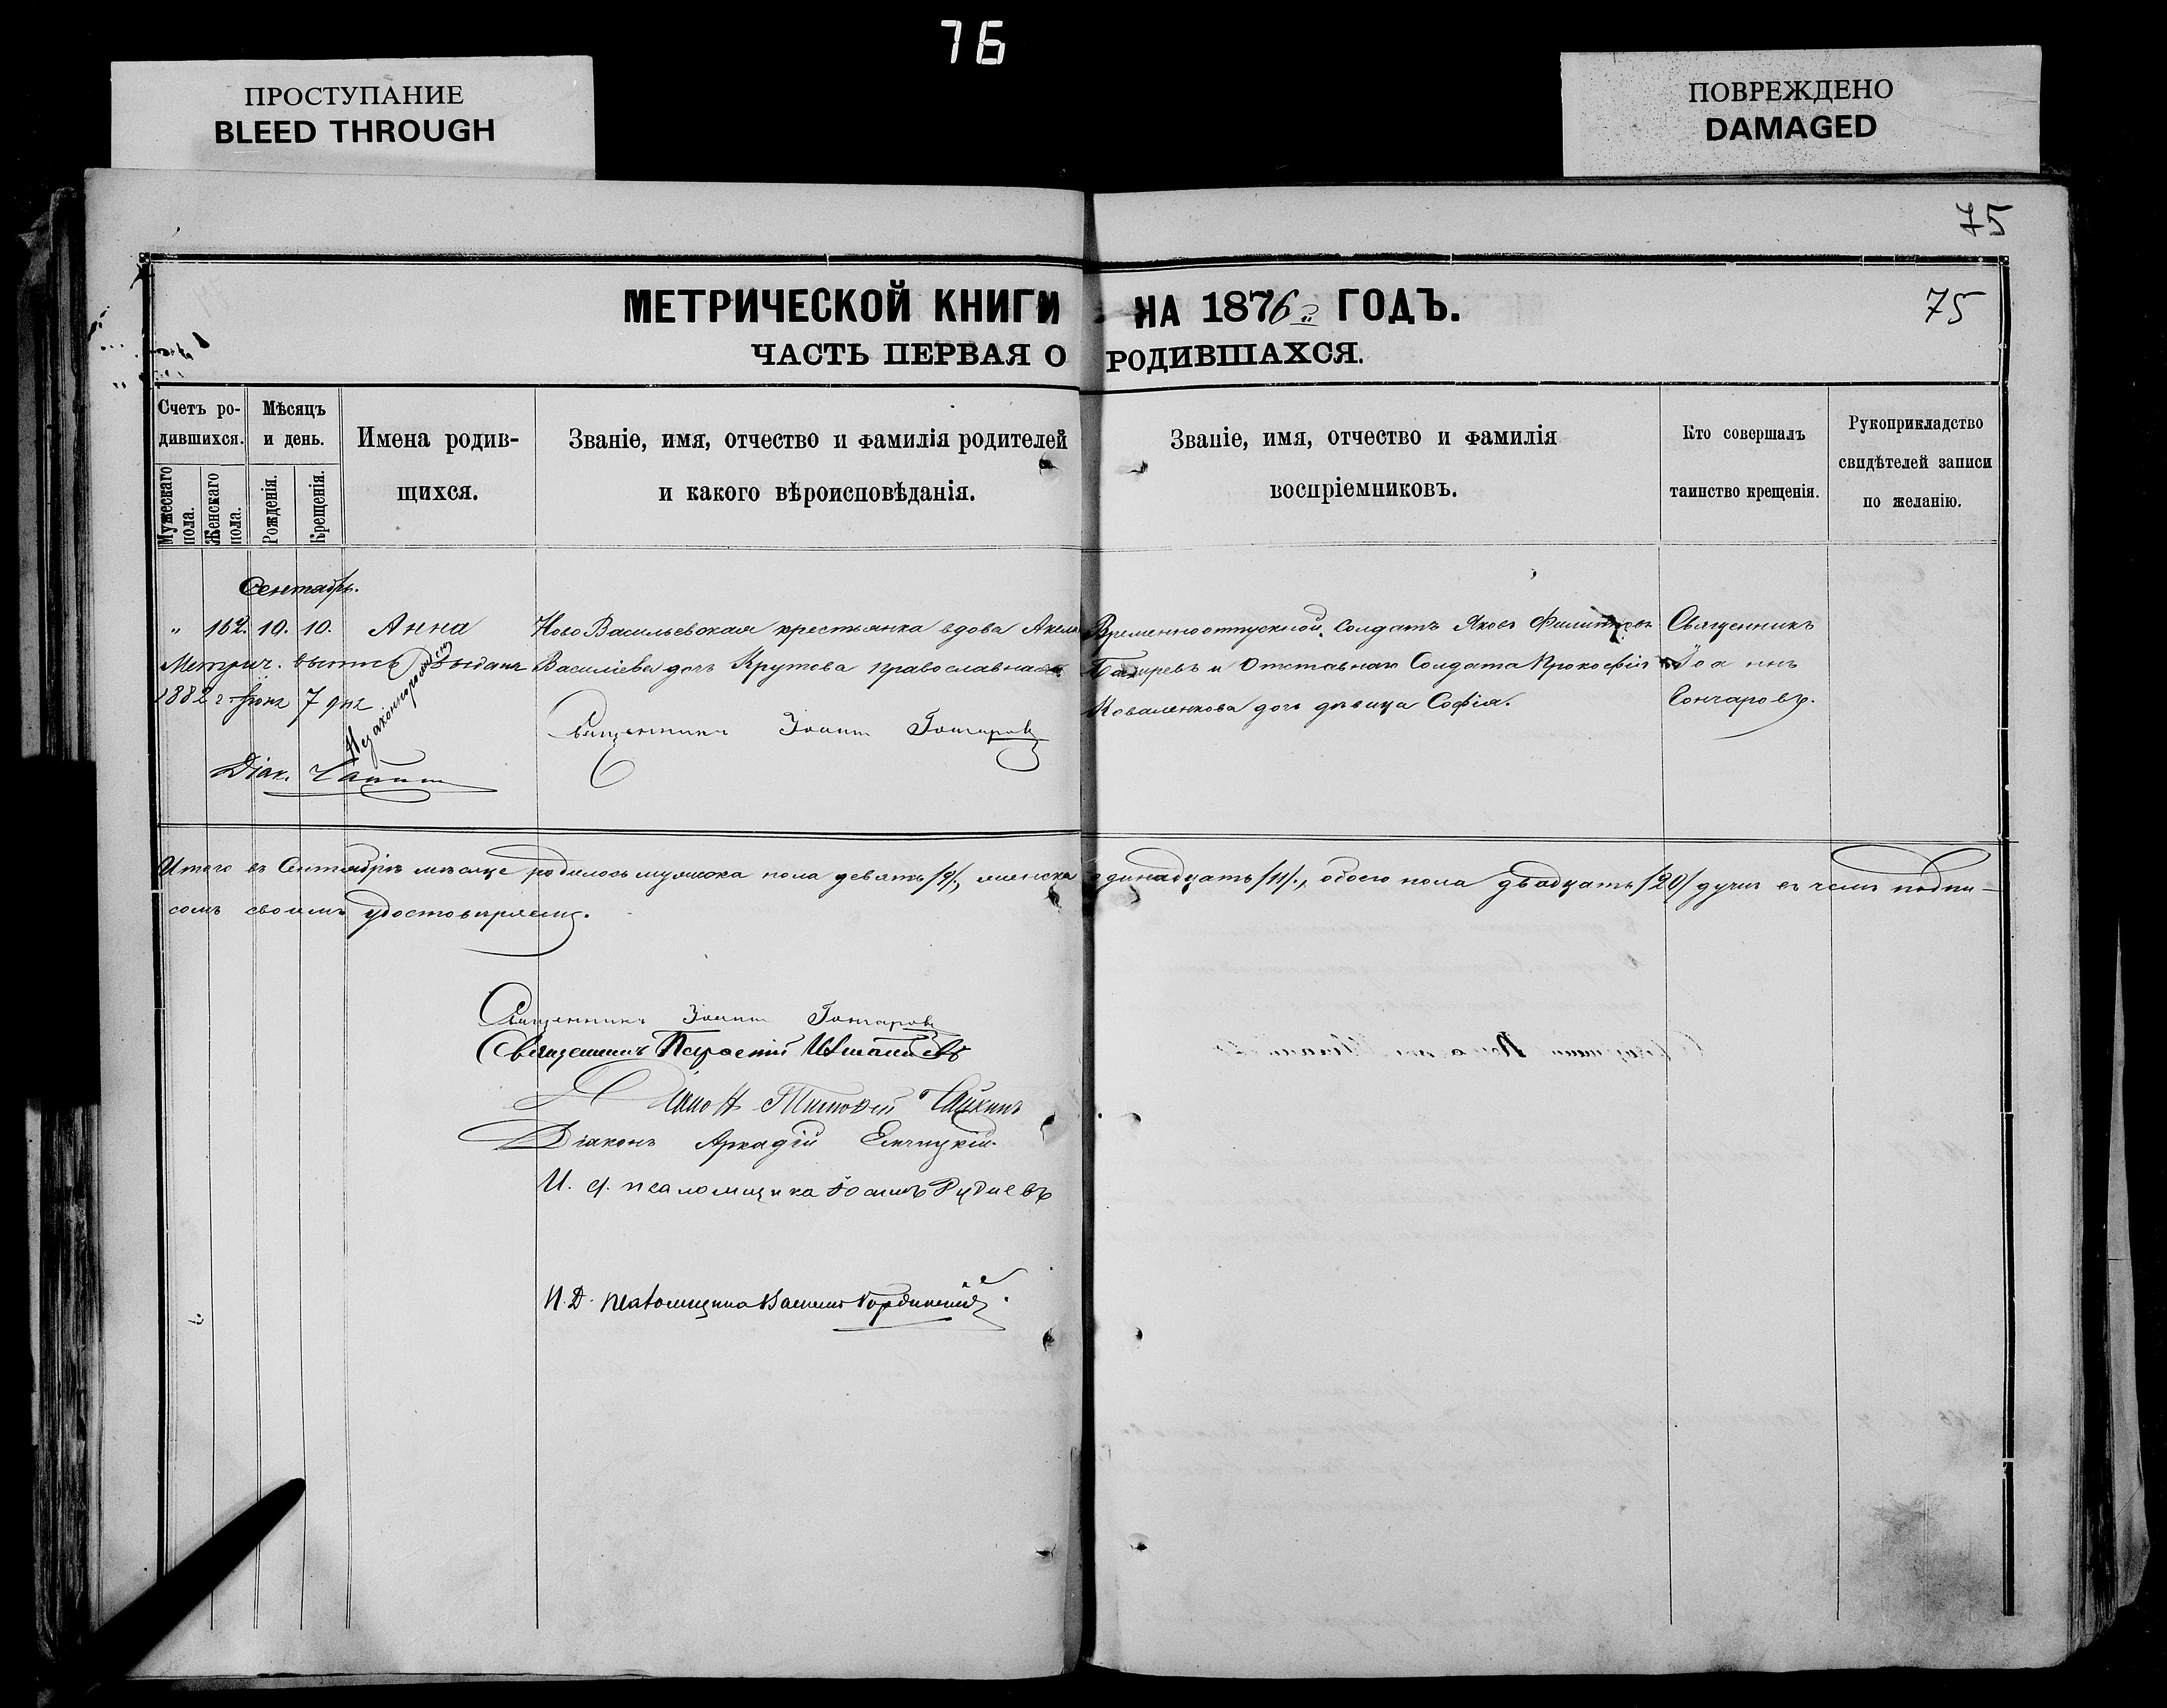 76
ПРОСТУПАНИЕ
BLEED THROUGH
ПОВРЕЖДЕНО
DAMAGED
75
МЕТРИЧЕСКОЙ КНИГИ НА 1876 ГОДЪ.
75
ЧАСТЬ ПЕРВАЯ О РОДИВШАХСЯ.
Счетъ ро-
дившихся.
Мужескаго пола.
Женскаго пола.
Мѣсяцъ
и день.
Рожденія.
Крещенія.
Имена родив-
шихся.
Званіе, имя, отчество и фамилія родителей
и какого вѣроисповѣданія.
Званіе, имя, отчество и фамилія
воспріемниковъ.
Кто совершалъ
таинство крещенія.
Рукоприкладство
свидѣтелей записи
по желанію.
Сентябрь.
" 162. 10. 10. Анна
Незаконнорожден
Метрич. выпись выдана
1882 г. Іюня 7 дня
Діак. Чайкин
Ново Васильевская крестьянка вдова
Василіева дочь Крутова православная
Священникъ Іоаннъ Гончаровъ
Временноотпускной Солдатъ Яковъ
и Отставнаго Солдата Прокофія
Коваленкова дочь дѣвица Софія.
Священникъ
Іоаннъ
Гончаровъ.
Итого въ Сентябрѣ мѣсяце родилось мужеска пола девять /9/, женска одинадцать /11/, обоего пола двадцать /20/ душъ въ чемъ подпи-
сомъ своимъ удостоверяемъ.
Священникъ Іоаннъ Гончаровъ
Священникъ
Діаконъ Тимофей Чайкинъ
Діаконъ Аркадій
И. д. псаломщика Іоаннъ
И. Д. псаломщика Василій